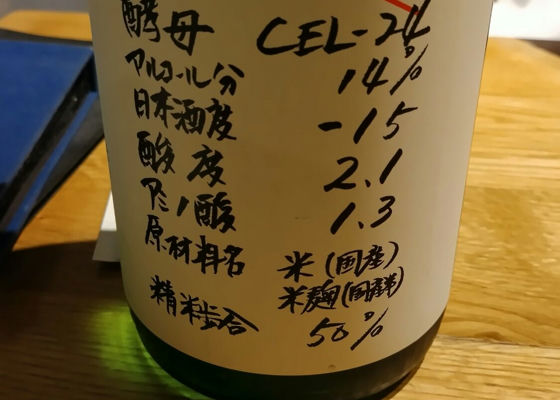 酵母 CEL-24
アルコール分 14%
日本酒度 -15
酸度 2.1
アミノ酸 1.3
原材料名 米(国産)
米麹(国産米)
精米歩合 50%